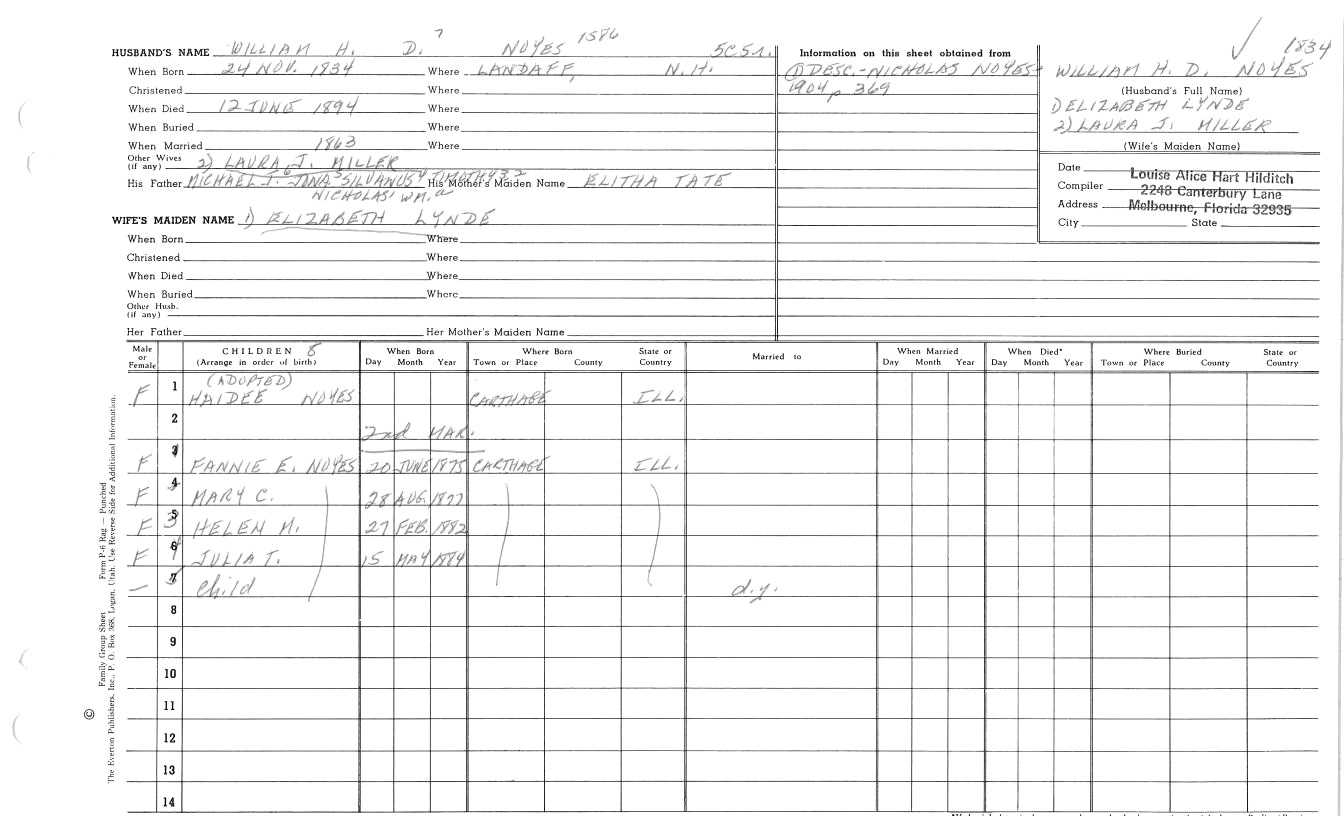 7 1586 1834
HUSBAND'S NAME WILLIAM H. D. NOYES 5C51. Information on this sheet obtained from
When Born 24 NOV. 1834 Where LANDAFF, N.H. ① DESC.-NICHOLAS NOYES+ WILLIAM H. D. NOYES
Christened Where 1904 p 369 (Husband's Full Name)
When Died 12 JUNE 1894 Where 1) ELIZABETH LYNDE
When Buried Where 2) LAURA J. MILLER
When Married 1863 Where (Wife's Maiden Name)
Other Wives (if any) 2) LAURA J. MILLER
Date
His Father MICHAEL J. 6 SILVANUS 4 TIMOTHY 3, 2 His Mother's Maiden Name ELITHA TATE
NICHOLAS' WM. a
Compiler Louise Alice Hart Hilditch
Address 2248 Canterbury Lane
Melbourne, Florida 32935
City State
WIFE'S MAIDEN NAME 1) ELIZABETH LYNDE
When Born Where
Christened Where
When Died Where
When Buried Where
Other Husb. (if any)
Her Father Her Mother's Maiden Name
Male or Female CHILDREN (Arrange in order of birth) When Born Day Month Year Where Born Town or Place County State or Country Married to When Married Day Month Year When Died* Day Month Year Where Buried Town or Place County State or Country
(ADOPTED)
F 1 HAIDEE NOYES CARTHAGE ILL.
2 2nd MAR.
F 3 FANNIE E. NOYES 20 JUNE 1875 CARTHAGE ILL.
F 4 MARY C. 28 AUG. 1877
F 5 3 HELEN M. 27 FEB. 1882
F 6 4 JULIA T. 15 MAY 1884
— 7 5 Child d.y.
8
9
10
11
12
13
14
Family Group Sheet Form P-6 Rag — Punched
© The Everton Publishers, Inc., P. O. Box 368, Logan, Utah. Use Reverse Side for Additional Information.